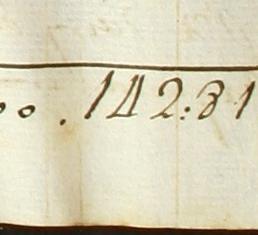 oo . 142:81